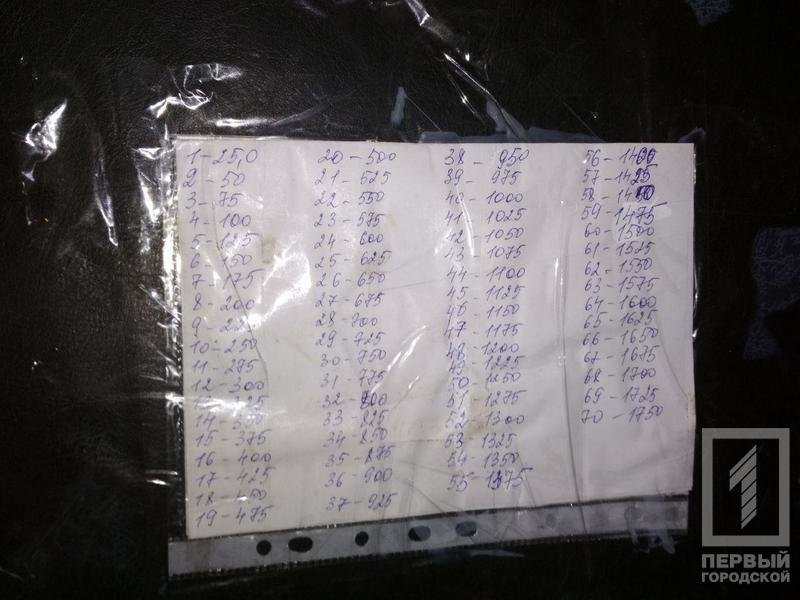 1-25,0
2-50
3-75
4-100
5-125
6-150
7-175
8-200
9-225
10-250
11-275
12-300
13-325
14-350
15-375
16-400
17-425
18-450
19-475
20-500
21-525
22-550
23-575
24-600
25-625
26-650
27-675
28-700
29-725
30-750
31-775
32-800
33-825
34-850
35-875
36-900
37-925
38-950
39-975
40-1000
41-1025
42-1050
43-1075
44-1100
45-1125
46-1150
47-1175
48-1200
49-1225
50-1250
51-1275
52-1300
53-1325
54-1350
55-1375
56-1400
57-1425
58-1450
59-1475
60-1500
61-1525
62-1550
63-1575
64-1600
65-1625
66-1650
67-1675
68-1700
69-1725
70-1750
1
ПЕРВЫЙ
ГОРОДСКОЙ